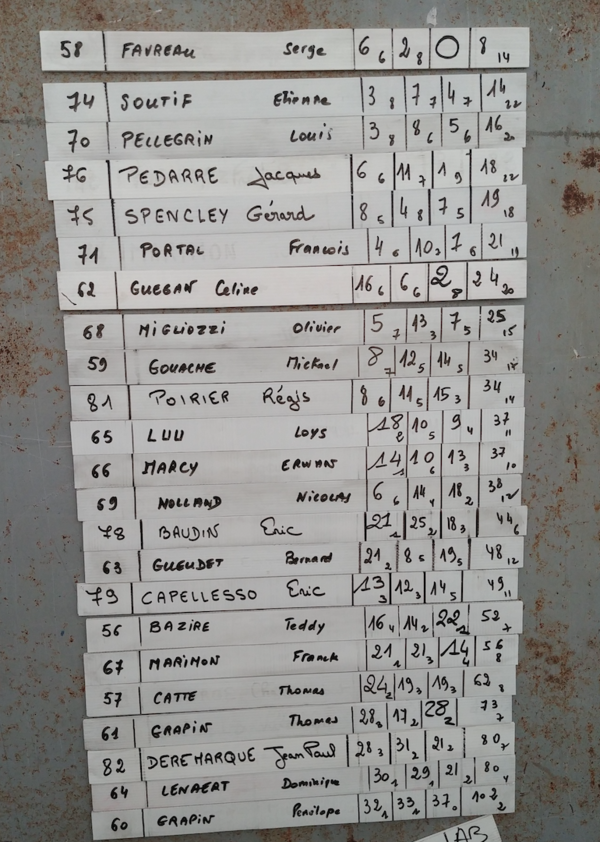 58 FAVREAU Serge 6 6 2 8 0 8 14
74 SOUTIF Etienne 3 8 7 7 4 7 14 22
70 PELLEGRIN Louis 3 8 8 6 5 6 16 20
76 PEDARRE Jacques 6 6 11 7 1 9 18 22
75 SPENCLEY Gérard 8 5 4 8 7 5 19 18
71 PORTAL Francois 4 6 10 3 7 6 21
62 GUEGAN Celine 16 6 6 6 2 8 24 20
68 MIGLIOZZI Olivier 5 7 13 3 7 5 25 15
59 GOUACHE Mickael 8 7 12 5 14 5 34
81 POIRIER Régis 8 6 11 5 15 3 34 14
65 LUU LOYS 18 2 10 5 9 4 37 11
66 MARCY ERWAN 14 1 10 6 13 3 37 10
69 HOLLAND NICOLAS 6 6 14 4 18 2 38 12
78 BAUDIN Eric 21 1 25 2 18 3 44 6
63 GUEUDET Bernard 21 2 8 5 19 5 48 12
79 CAPELLESSO Eric 13 3 12 3 14 5 49 11
56 BAZIRE Teddy 16 4 14 2 22 52 7
67 MARIMON Franck 21 1 21 3 14 4 56 8
57 CATTE Thomas 24 2 19 3 19 3 62 8
61 GRAPIN Thomas 28 3 17 2 28 2 73 7
82 DEREMARQUE Jean Paul 28 3 31 2 21 2 80 7
64 LENAERT Dominique 30 1 29 1 21 2 80 4
60 GRAPIN Penelope 32 1 33 1 37 0 102 2
LAB